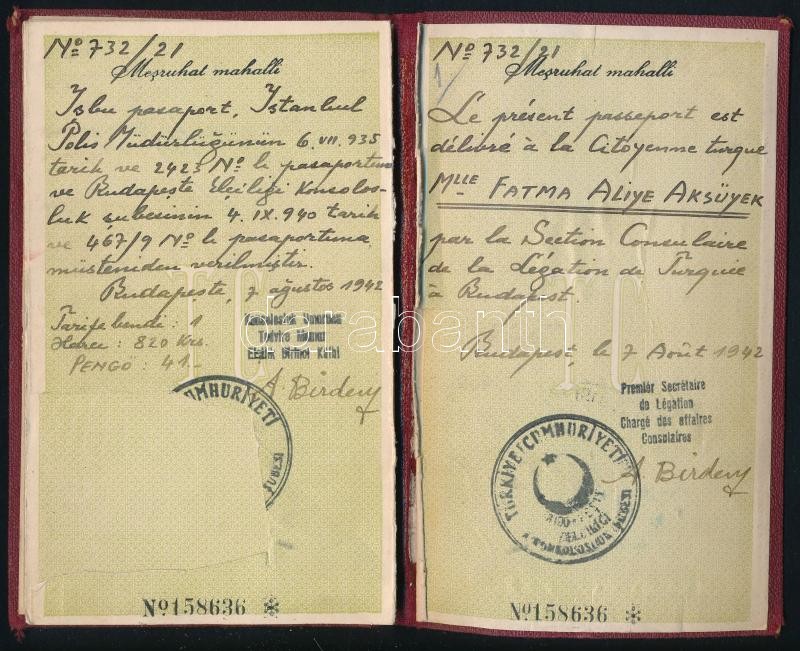 No 732/21
Meşruhat mahalli
İşbu pasaport, İstanbul
Polis Müdürlüğünün 6.VII.935
tarih ve 2423 No lı pasaportuna
ve Budapeşte Elçiliği Konsolos-
luk şubesinin 4.IX.940 tarih
ve 467/9 No lı pasaportuna
müsteniden verilmiştir.
Budapeşte, 7 ağustos 1942
Tarife bendi: 1
Harcı: 820 Krş.
PENGO: 41.-
Konsolosluk
Tedvire Memur
Elçilik Birinci Kâtibi
A. Birden
CUMHURİYETİ
ŞUBESİ
No 158636 ✻
No 732/21
Meşruhat mahalli
1/
Le présent passeport est
délivré à la Citoyenne turque
Mlle FATMA ALİYE AKSÜYEK
par la Section Consulaire
de la Légation de Turquie
à Budapest.
Budapest, le 7 Août 1942
Premier Secrétaire
de Légation
Chargé des affaires
Consulaires
A. Birden
TÜRKİYE CUMHURİYETİ
KONSOLOSLUK ŞUBESİ
TC
No 158636 ✻
darabanth